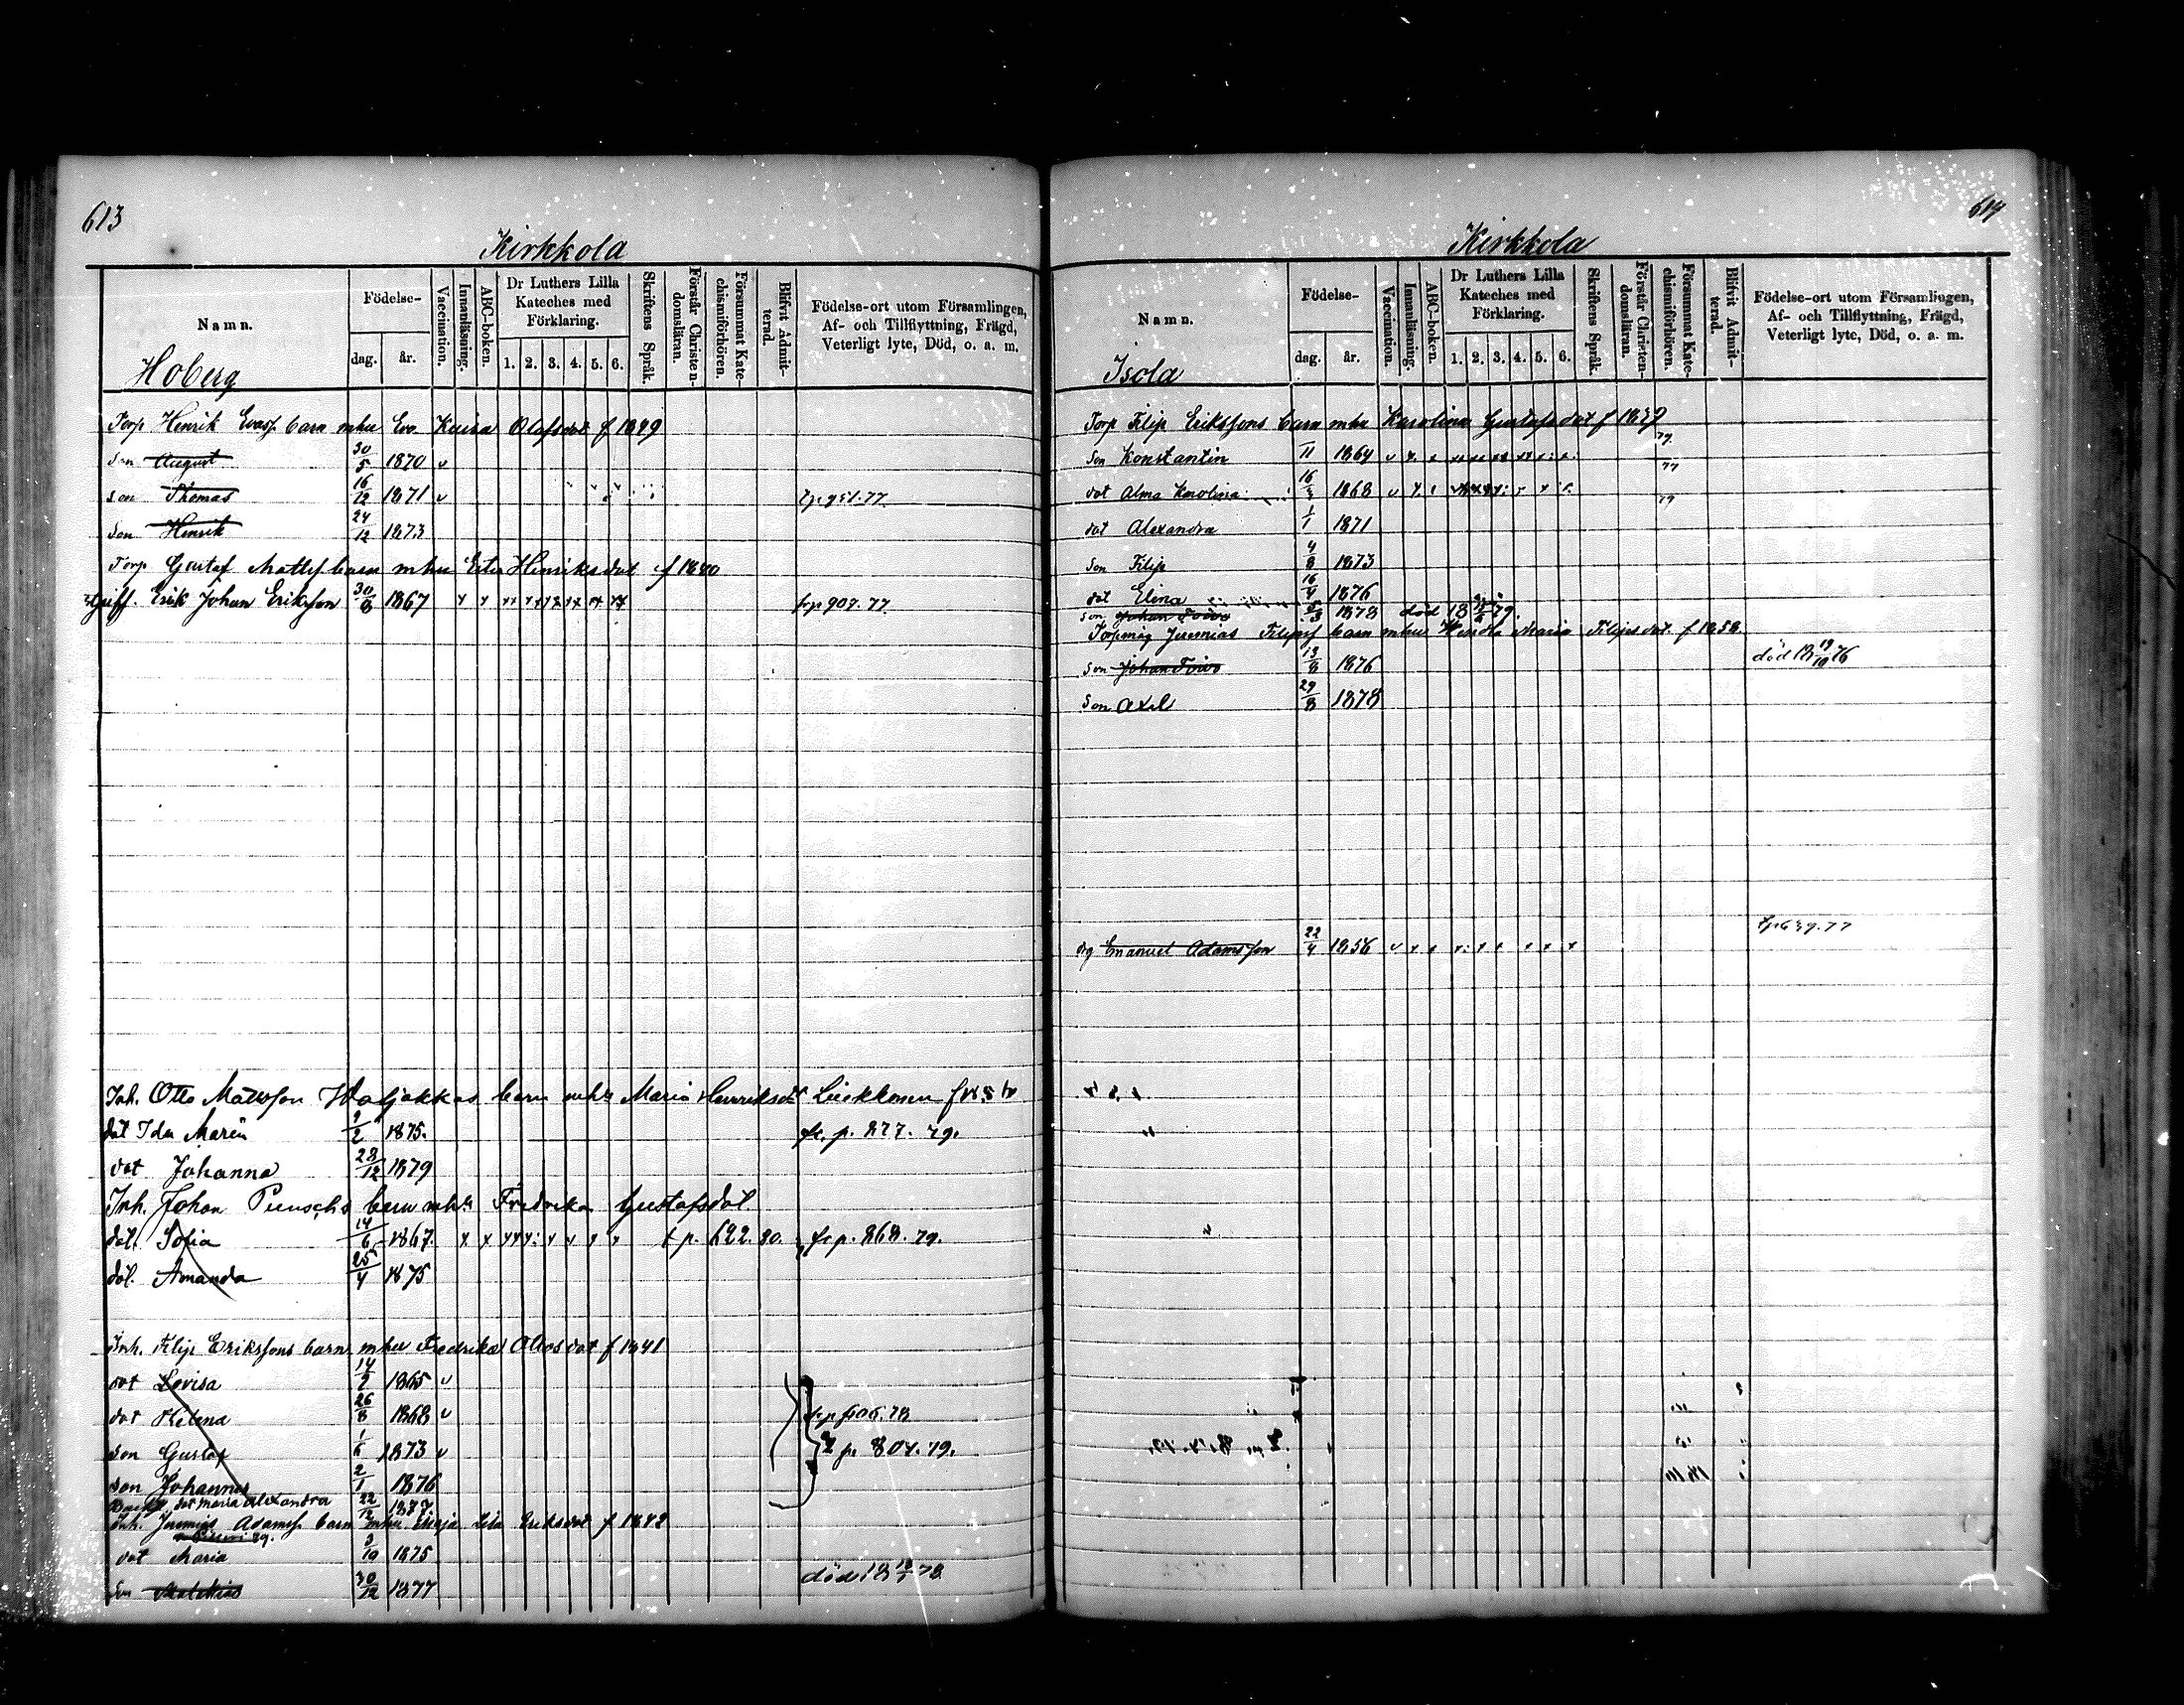 613
Kirkkola
Namn.
Födelse-
dag.
år.
Vaccination.
Innanläsning.
ABC-boken.
Dr Luthers Lilla Kateches med Förklaring.
1. 2. 3. 4. 5. 6.
Skriftens Språk.
Förstår Christendomsläran.
Försummat Katechismiförhören.
Blifvit Admitterad.
Födelse-ort utom Församlingen,
Af- och Tillflyttning, Frägd,
Veterligt lyte, Död, o. a. m.
Hoberg
Torp Henrik Evasf. barn mhu Eva Kaisa Olofsdot f 1849
son August 30/5 1870 v
son Thomas 16/12 1871 v
son Henrik 24/12 1873
Torp Gustaf Mattsf barn mhu Henriksdot f 1840
Erik Johan Eriksson 30/8 1867 frp 907. 77
Inh. Otto Mattsson barn mhu Maria Henriksdt
dot Ida Maria 2/2 1875. fr. p. 877. 79.
dot Johanna 28/12 1879
Inh. Johan barn mhu Fredrika Gustafsdot
dot. Sofia 14/6 1867. t p. 622. 80. fr p. 868. 79.
dot. Amanda 25/4 1875
Inh. Filip Erikssons barn mhu Fredrika dot f 1841
dot Lovisa 1865 v
dot Helena 26/8 1868 v
son Gustaf 1/6 1873 v t p. 807. 79.
son Johannes 2/1 1876
dot Maria Alexandra 22/12 1877
Inh. Jeremias Adamsf. barn mhu Lisa Eriksdot f 1842
dot Maria 1875
son 30/12 1877 död 18 78
614
Kirkkola
Namn.
Födelse-
dag.
år.
Vaccination.
Innanläsning.
ABC-boken.
Dr Luthers Lilla Kateches med Förklaring.
1. 2. 3. 4. 5. 6.
Skriftens Språk.
Förstår Christendomsläran.
Försummat Katechismiförhören.
Blifvit Admitterad.
Födelse-ort utom Församlingen,
Af- och Tillflyttning, Frägd,
Veterligt lyte, Död, o. a. m.
Isola
Torp Filip Erikssons barn mhu Karolina Gustafsdot f 1837
son Konstantin 1864
dot Alma Karolina 1868
dot Alexandra 1/1 1871
son Filip 4/8 1873
dot Elina 16/4 1876
son Johan Toivo 1878 död 18 79
Torpmåg Jeremias Filipsf barn mhu Maria Filipsdot. f 1858
son Johan Toivo 13/8 1876 död 18 19/10 76
son Axel 29/8 1878
drg Emanuel Adamsson 22/4 1856 tp 639. 77